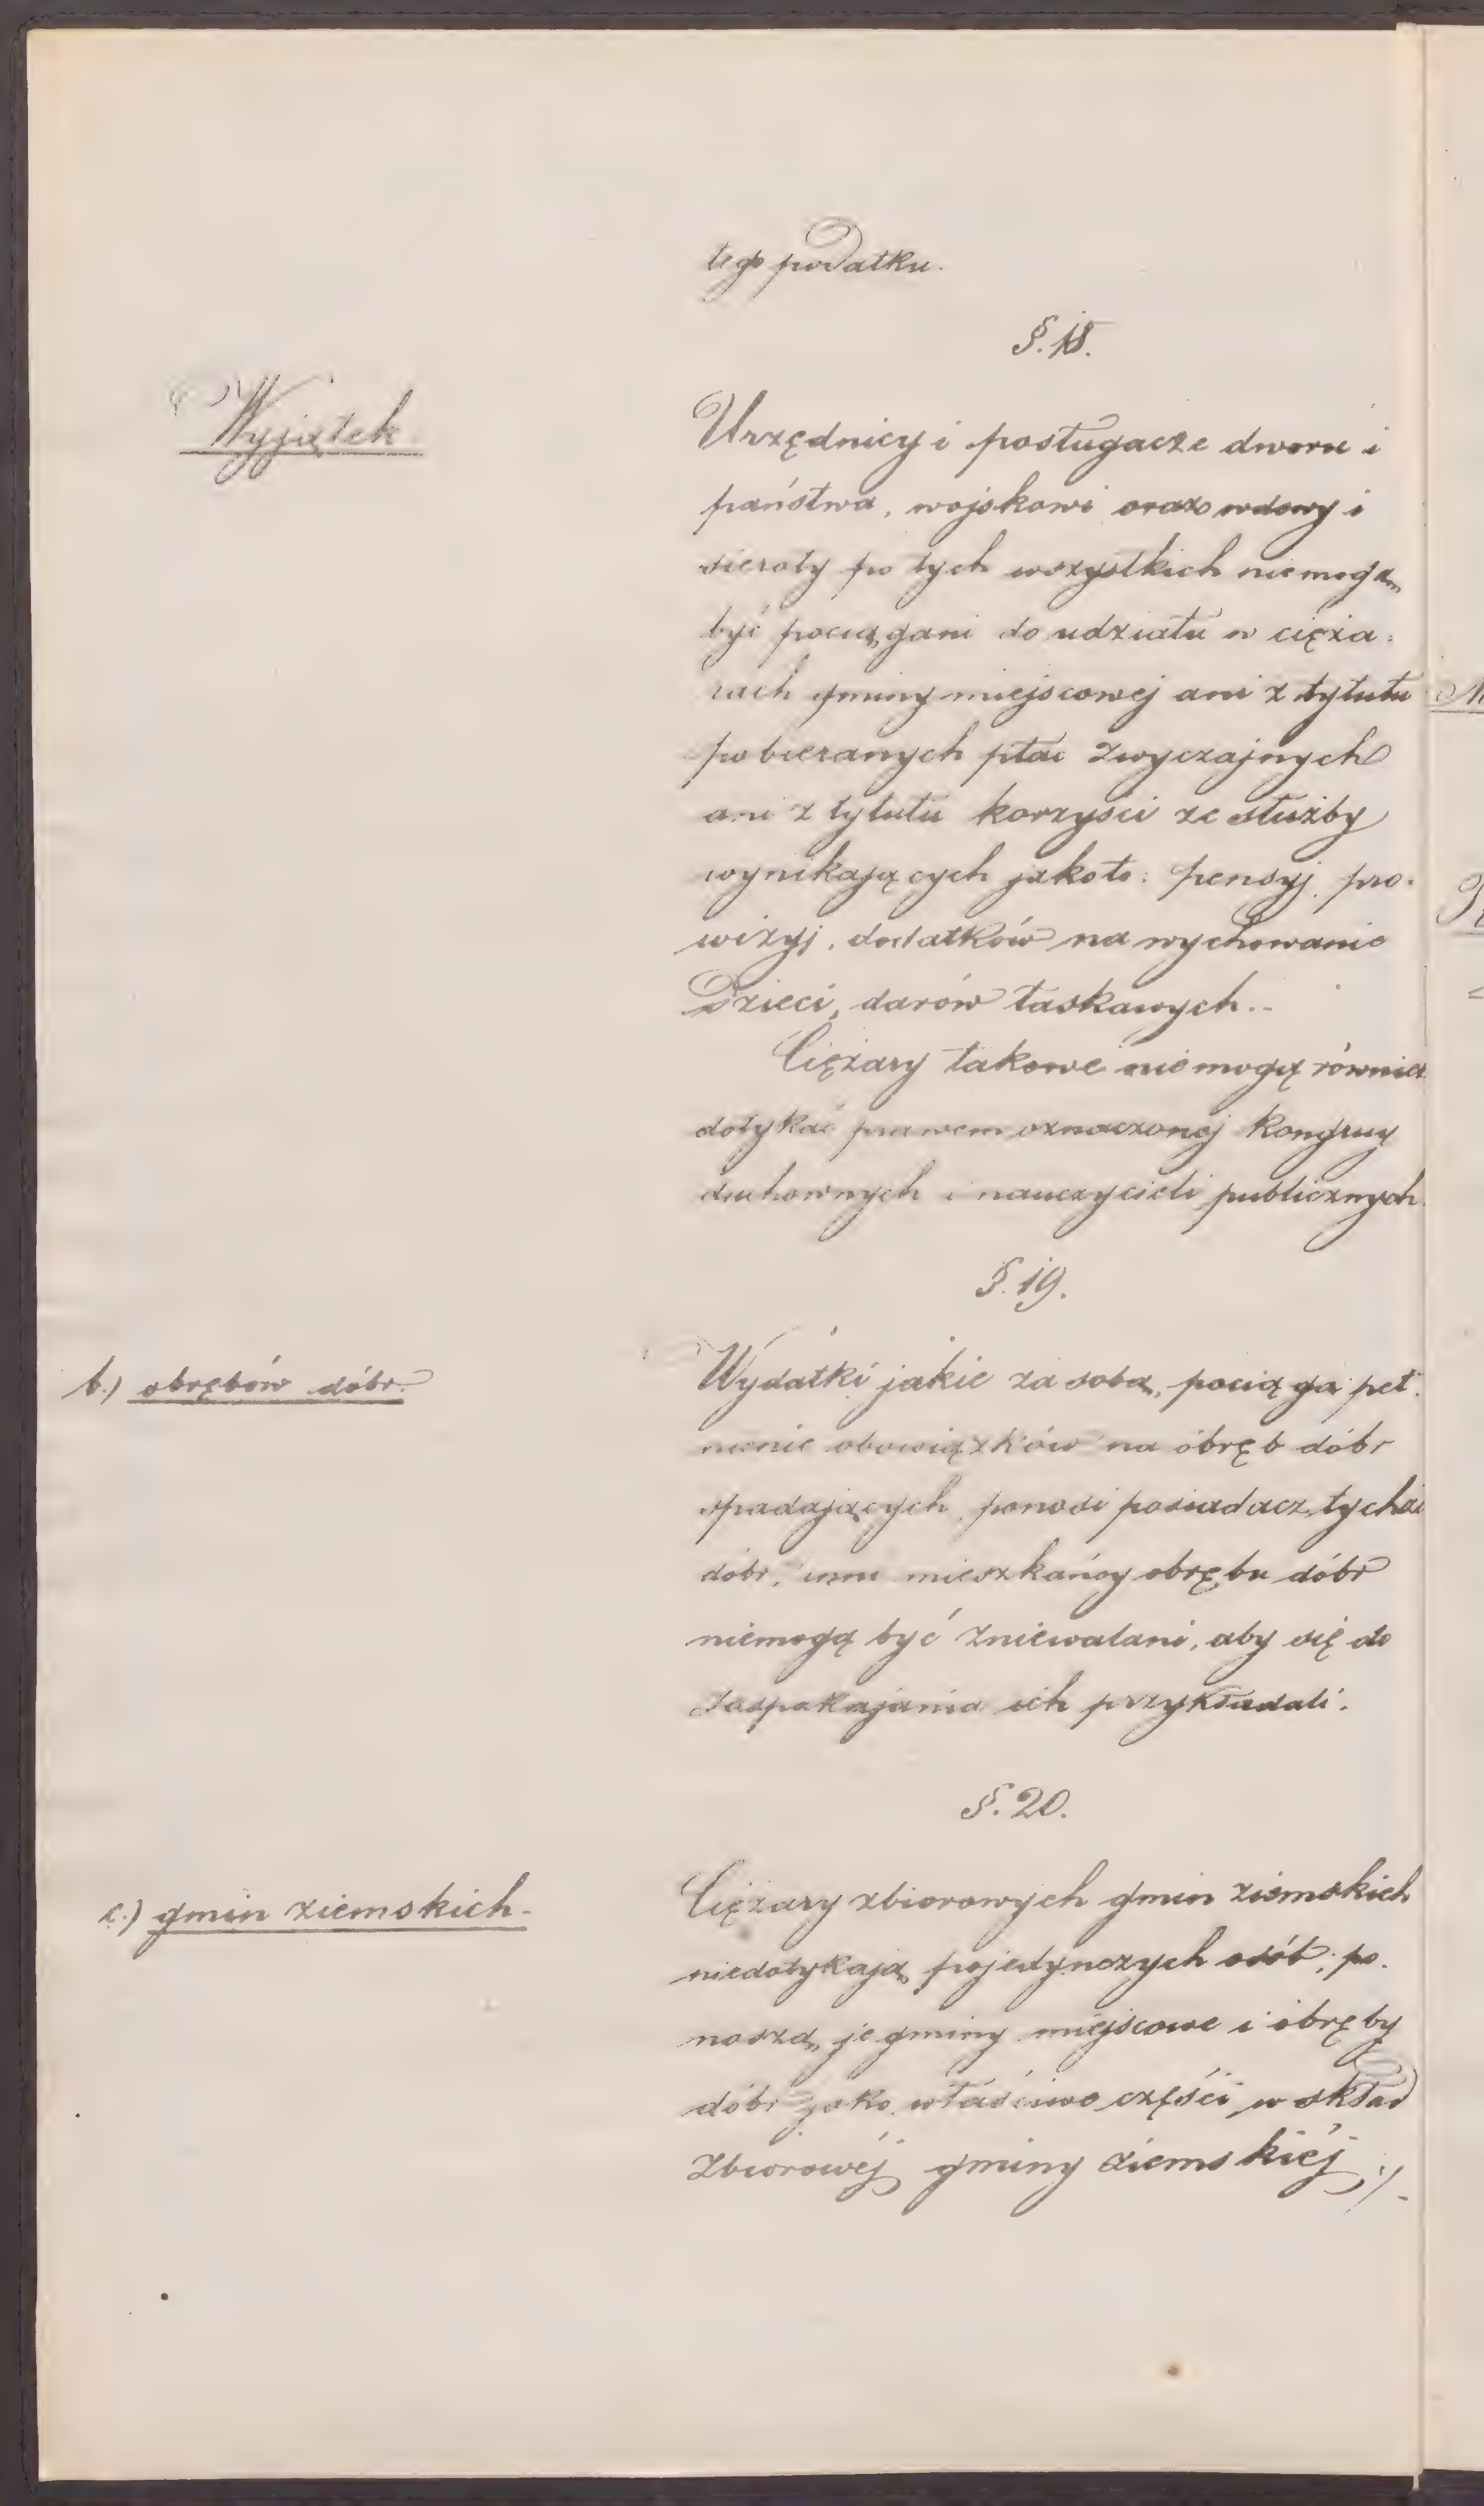 tego podatku.
§. 18.
Wyjątek
Urzędnicy i posługacze dworu i
państwa, wojskowi oraz wdowy i
sieroty po tych wszystkich niemogą
być pociągani do udziału w cięża-
rach gminy miejscowej ani z tytułu
pobieranych płac zwyczajnych
ani z tytułu korzyści ze służby
wynikających jakoto: pensyj, pro-
wizyj, dodatków na wychowanie
dzieci, darów łaskawych..
Ciężary takowe niemogą również
dotykać prawem oznaczonej kongruy
duchownych i nauczycieli publicznych.
§. 19.
b.) obrębów dóbr.
Wydatki jakie za sobą pociąga peł-
nienie obowiązków na obręb dóbr
spadających, ponosi posiadacz tychże
dóbr, inni mieszkańcy obrębu dóbr
niemogą być zniewalani, aby się do
zaspakajania ich przykładali.
§. 20.
c.) gmin ziemskich.
Ciężary zbiorowych gmin ziemskich
niedotykają pojedynczych osób; po-
noszą je gminy miejscowe i obręby
dóbr jako właściwe części w skład
zbiorowéj gminy ziemskiéj